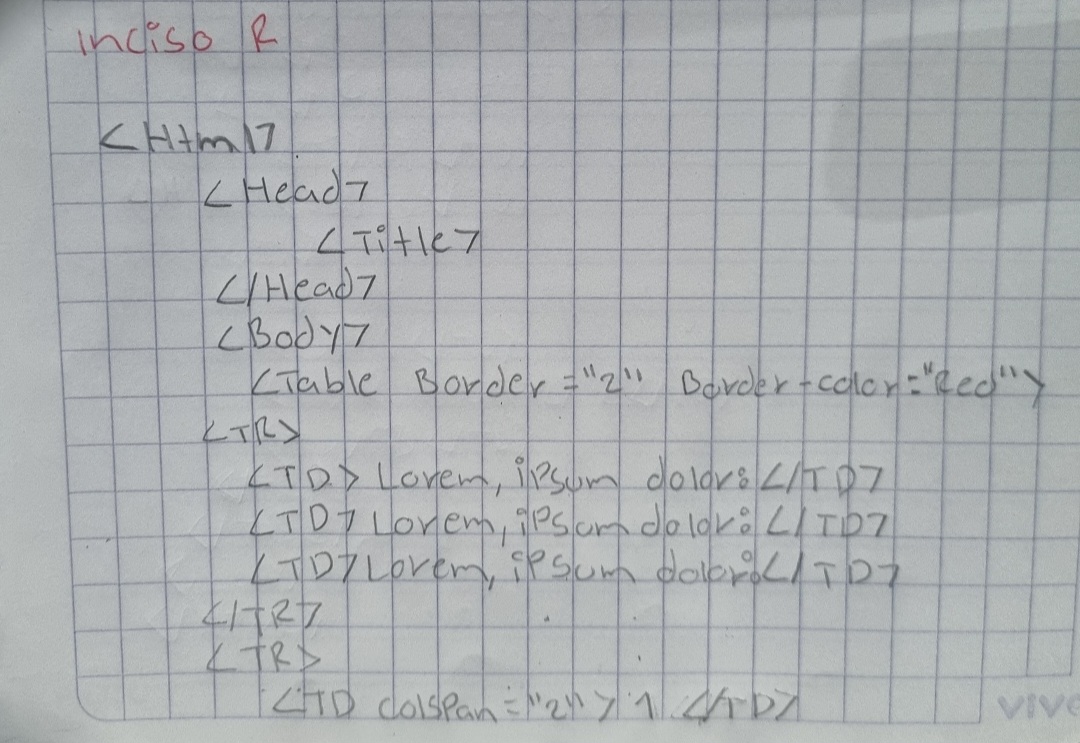 inciso R
<Html>
<Head>
<Title>
</Head>
<Body>
<Table Border="2" Border-color="Red">
<TR>
<TD>Lorem, ipsum dolor:</TD>
<TD>Lorem, ipsum dolor:</TD>
<TD>Lorem, ipsum dolor:</TD>
</TR>
<TR>
<TD colspan="2">1</TD>
vivo